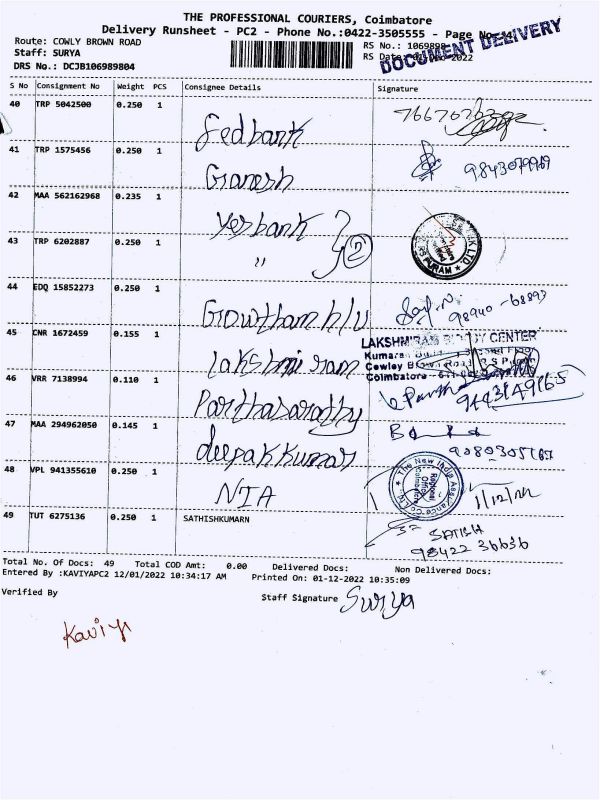 THE PROFESSIONAL COURIERS, Coimbatore
Delivery Runsheet - PC2 - Phone No.:0422-3505555 - Page No.
Route: COWLY BROWN ROAD
RS No.: 1069898
Staff: SURYA
RS Date 2022
DOCUMENT DELIVERY
DRS No.: DCJB106989804
S No Consignment No Weight PCS Consignee Details Signature
40 TRP 5042500 0.250 1 Fedbank
41 TRP 1575456 0.250 1 Ganesh
42 MAA 562162968 0.235 1 Yesbank
43 TRP 6202887 0.250 1 " 2
PURAM
44 EDQ 15852273 0.250 1 Gowtham h/u 98940-68893
45 CNR 1672459 0.155 1 lakshmi ram
LAKSHMIRAM BODY CENTER
Coimbatore
46 VRR 7138994 0.110 1 Parthasarathy
47 MAA 294962050 0.145 1 deepak kumar
48 VPL 941355610 0.250 1 NIA
The New India Assurance Co Ltd
Regional Office
Coimbatore
1/12/22
49 TUT 6275136 0.250 1 SATHISHKUMARN SATISH
98422 36636
Total No. Of Docs: 49 Total COD Amt: 0.00 Delivered Docs: Non Delivered Docs:
Entered By :KAVIYAPC2 12/01/2022 10:34:17 AM Printed On: 01-12-2022 10:35:09
Verified By Staff Signature Surya
Kaviya